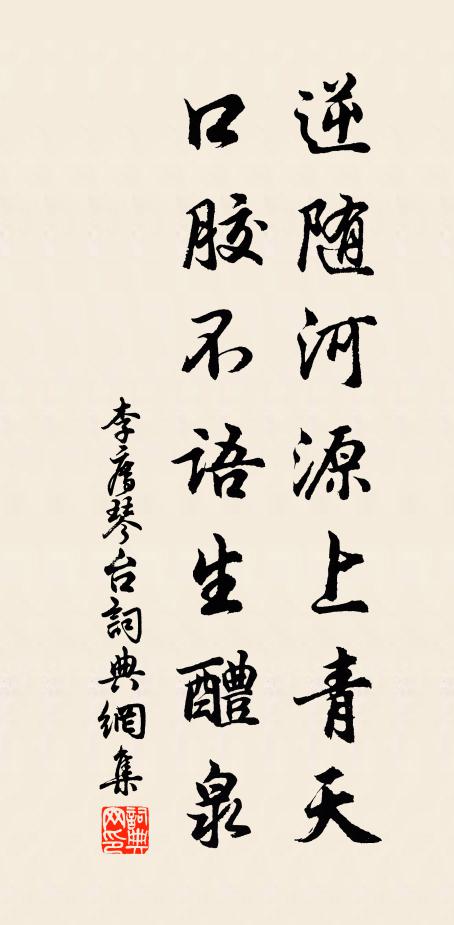 逆随河源上青天
口胶不语生醴泉
李廌琴台詞典網集
詞典网印